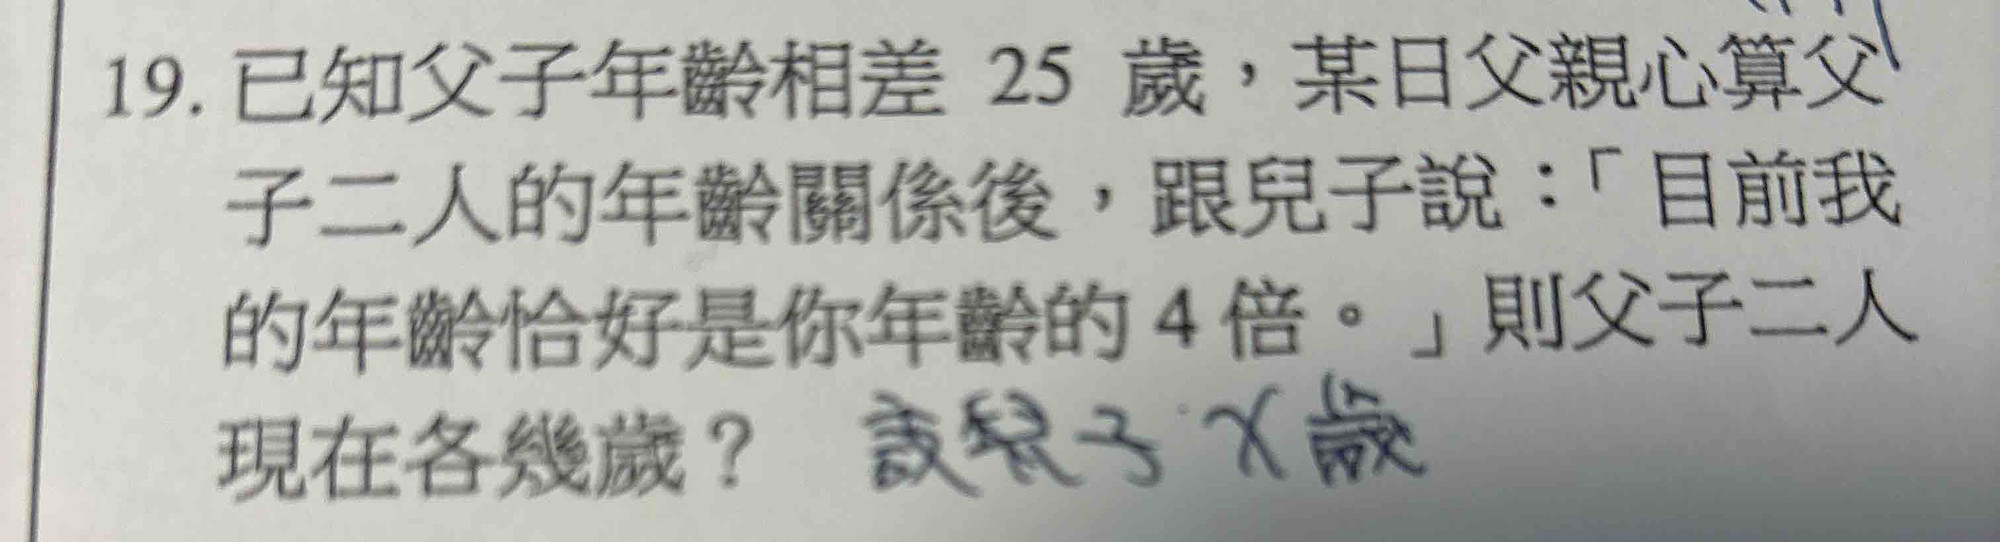 19. 已知父子年齡相差 25 歲，某日父親心算父
子二人的年齡關係後，跟兒子說：「目前我
的年齡恰好是你年齡的 4 倍。」則父子二人
現在各幾歲？ 設兒子 X 歲